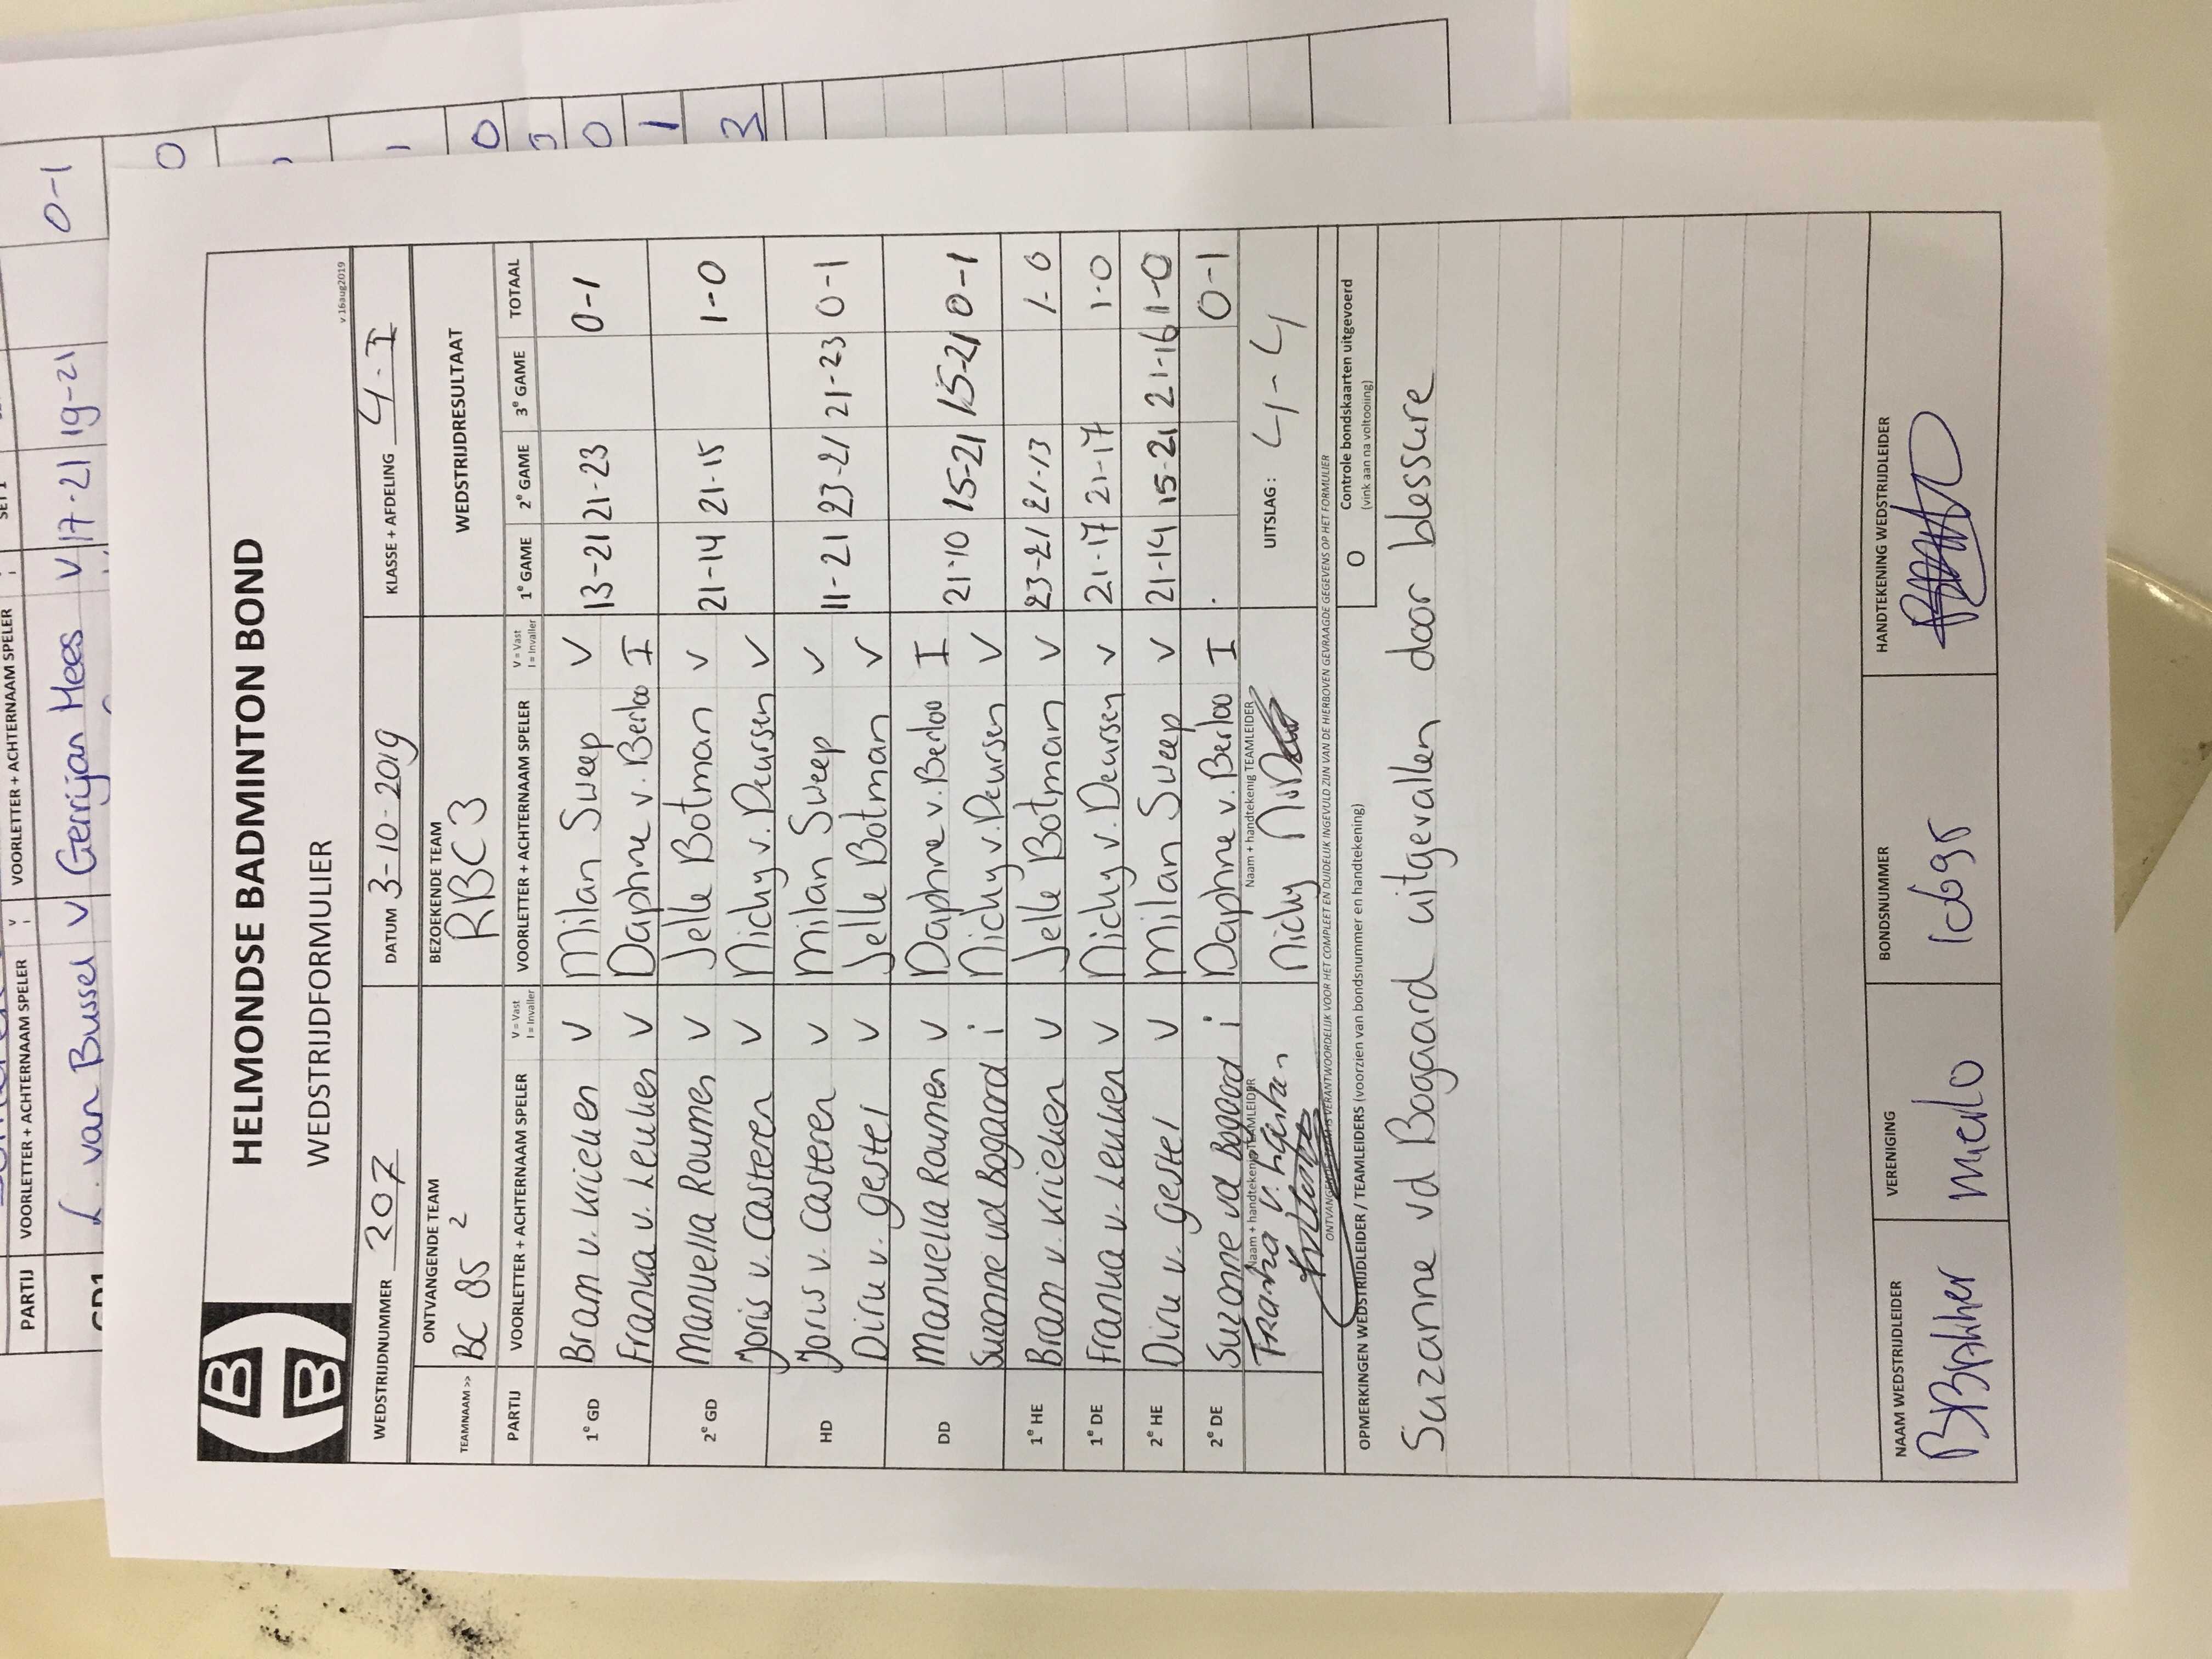 HELMONDSE BADMINTON BOND
WEDSTRIJDFORMULIER
v.16aug2019
WEDSTRIJDNUMMER 207 DATUM 3-10-2019 KLASSE + AFDELING 4-I
TEAMNAAM >> ONTVANGENDE TEAM BEZOEKENDE TEAM WEDSTRIJDRESULTAAT
BC 85 2 RBC 3
PARTIJ VOORLETTER + ACHTERNAAM SPELER V = Vast I = Invaller VOORLETTER + ACHTERNAAM SPELER V = Vast I = Invaller 1e GAME 2e GAME 3e GAME TOTAAL
1e GD Bram v. Krieken V Milan Sweep V 13-21 21-23 0-1
Franka v. Leuken V Daphne v. Berloo I
2e GD Manuella Roumen V Jelle Botman V 21-14 21-15 1-0
Joris v. Casteren V Nicky v. Deursen V
HD Joris v. Casteren V Milan Sweep V 11-21 23-21 21-23 0-1
Dirk v. Gestel V Jelle Botman V
DD Manuella Roumen V Daphne v. Berloo I 21-10 15-21 15-21 0-1
Suzanne vd Bogaard i Nicky v. Deursen V
1e HE Bram v. Krieken V Jelle Botman V 23-21 21-13 1-0
1e DE Franka v. Leuken V Nicky v. Deursen V 21-17 21-17 1-0
2e HE Dirk v. Gestel V Milan Sweep V 21-14 15-21 21-16 1-0
2e DE Suzanne vd Bogaard i Daphne v. Berloo I 0-1
Naam + handtekenig TEAMLEIDER Naam + handtekenig TEAMLEIDER UITSLAG: 4-4
Nicky
ONTVANGENDE VERANTWOORDELIJK VOOR HET COMPLEET EN DUIDELIJK INGEVULD ZIJN VAN DE HIERBOVEN GEVRAAGDE GEGEVENS OP HET FORMULIER
OPMERKINGEN WEDSTRIJDLEIDER / TEAMLEIDERS (voorzien van bondsnummer en handtekening) O Controle bondskaarten uitgevoerd
(vink aan na voltooiing)
Suzanne vd Bogaard uitgevallen door blessure
NAAM WEDSTRIJDLEIDER VERENIGING BONDSNUMMER HANDTEKENING WEDSTRIJDLEIDER
Mierlo
PARTIJ VOORLETTER + ACHTERNAAM SPELER V VOORLETTER + ACHTERNAAM SPELER
L. van Bussel V Gerrijan Hees V 17-21 19-21 0-1